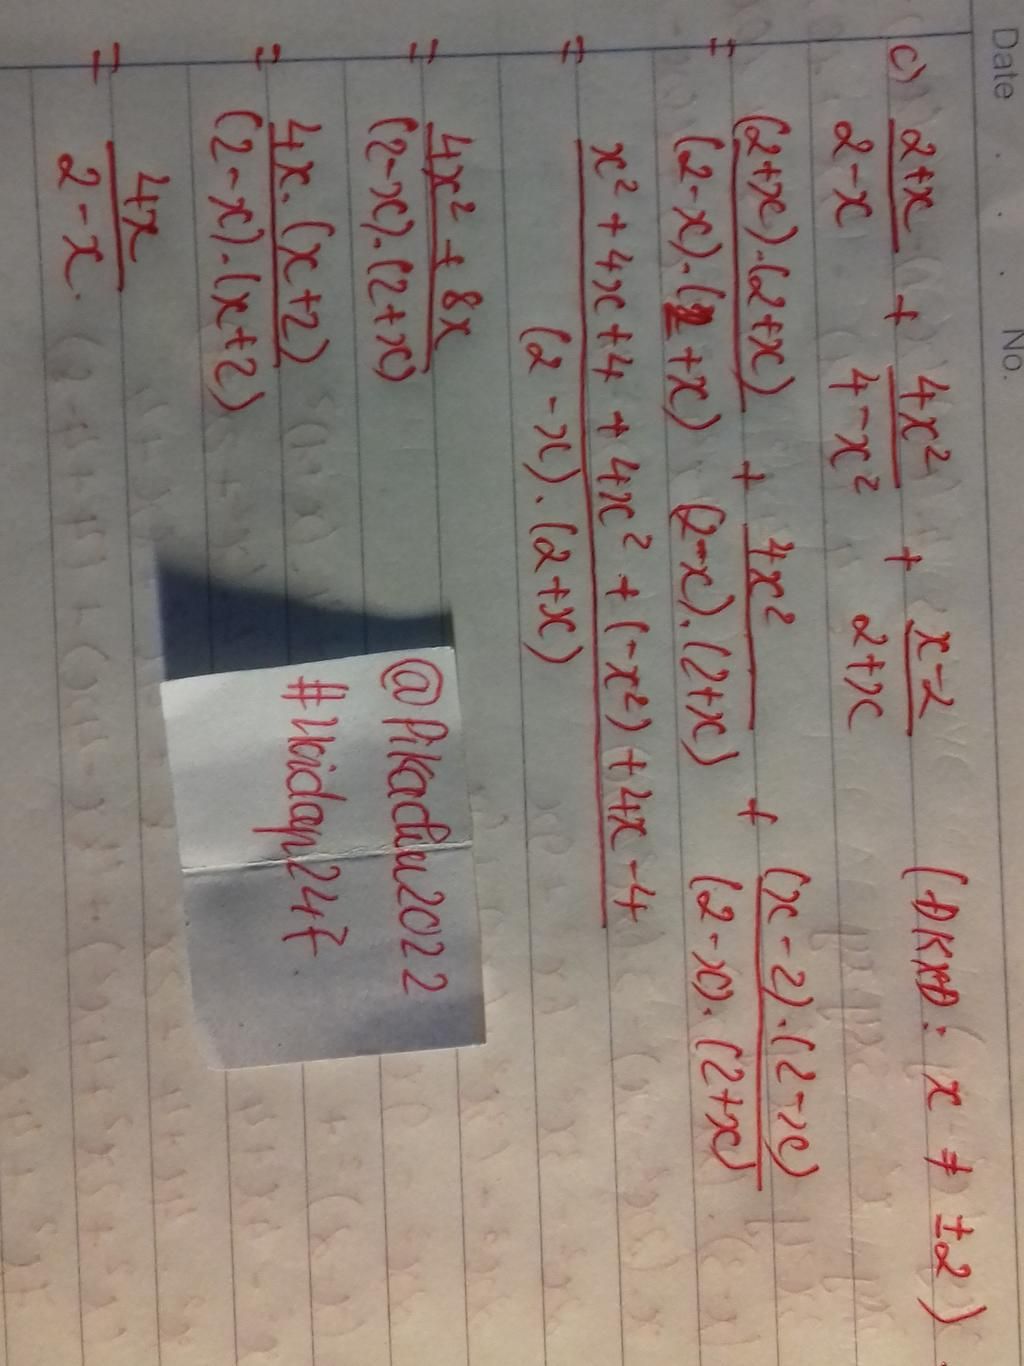 Date . . . No.
c) (2+x)/(2-x) + 4x²/(4-x²) + (x-2)/(2+x) (ĐKXĐ: x ≠ ±2)
= (2+x).(2+x)/(2-x).(2+x) + 4x²/(2-x).(2+x) + (x-2).(2-x)/(2-x).(2+x)
= x²+4x+4+4x²+(-x²)+4x-4/(2-x).(2+x)
= 4x²+8x/(2-x).(2+x)
= 4x.(x+2)/(2-x).(x+2)
= 4x/2-x.
@Pikachu2022
#Hoidap247